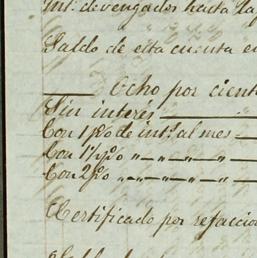 Int.s devengados hasta la
Saldo de esta cuenta en
Ocho por cient
Sin interés
Con 1 p%o de int.s al mes
Con 1½ p%o " " " "
Con 2 p%o " " " "
Certificado por refaccio